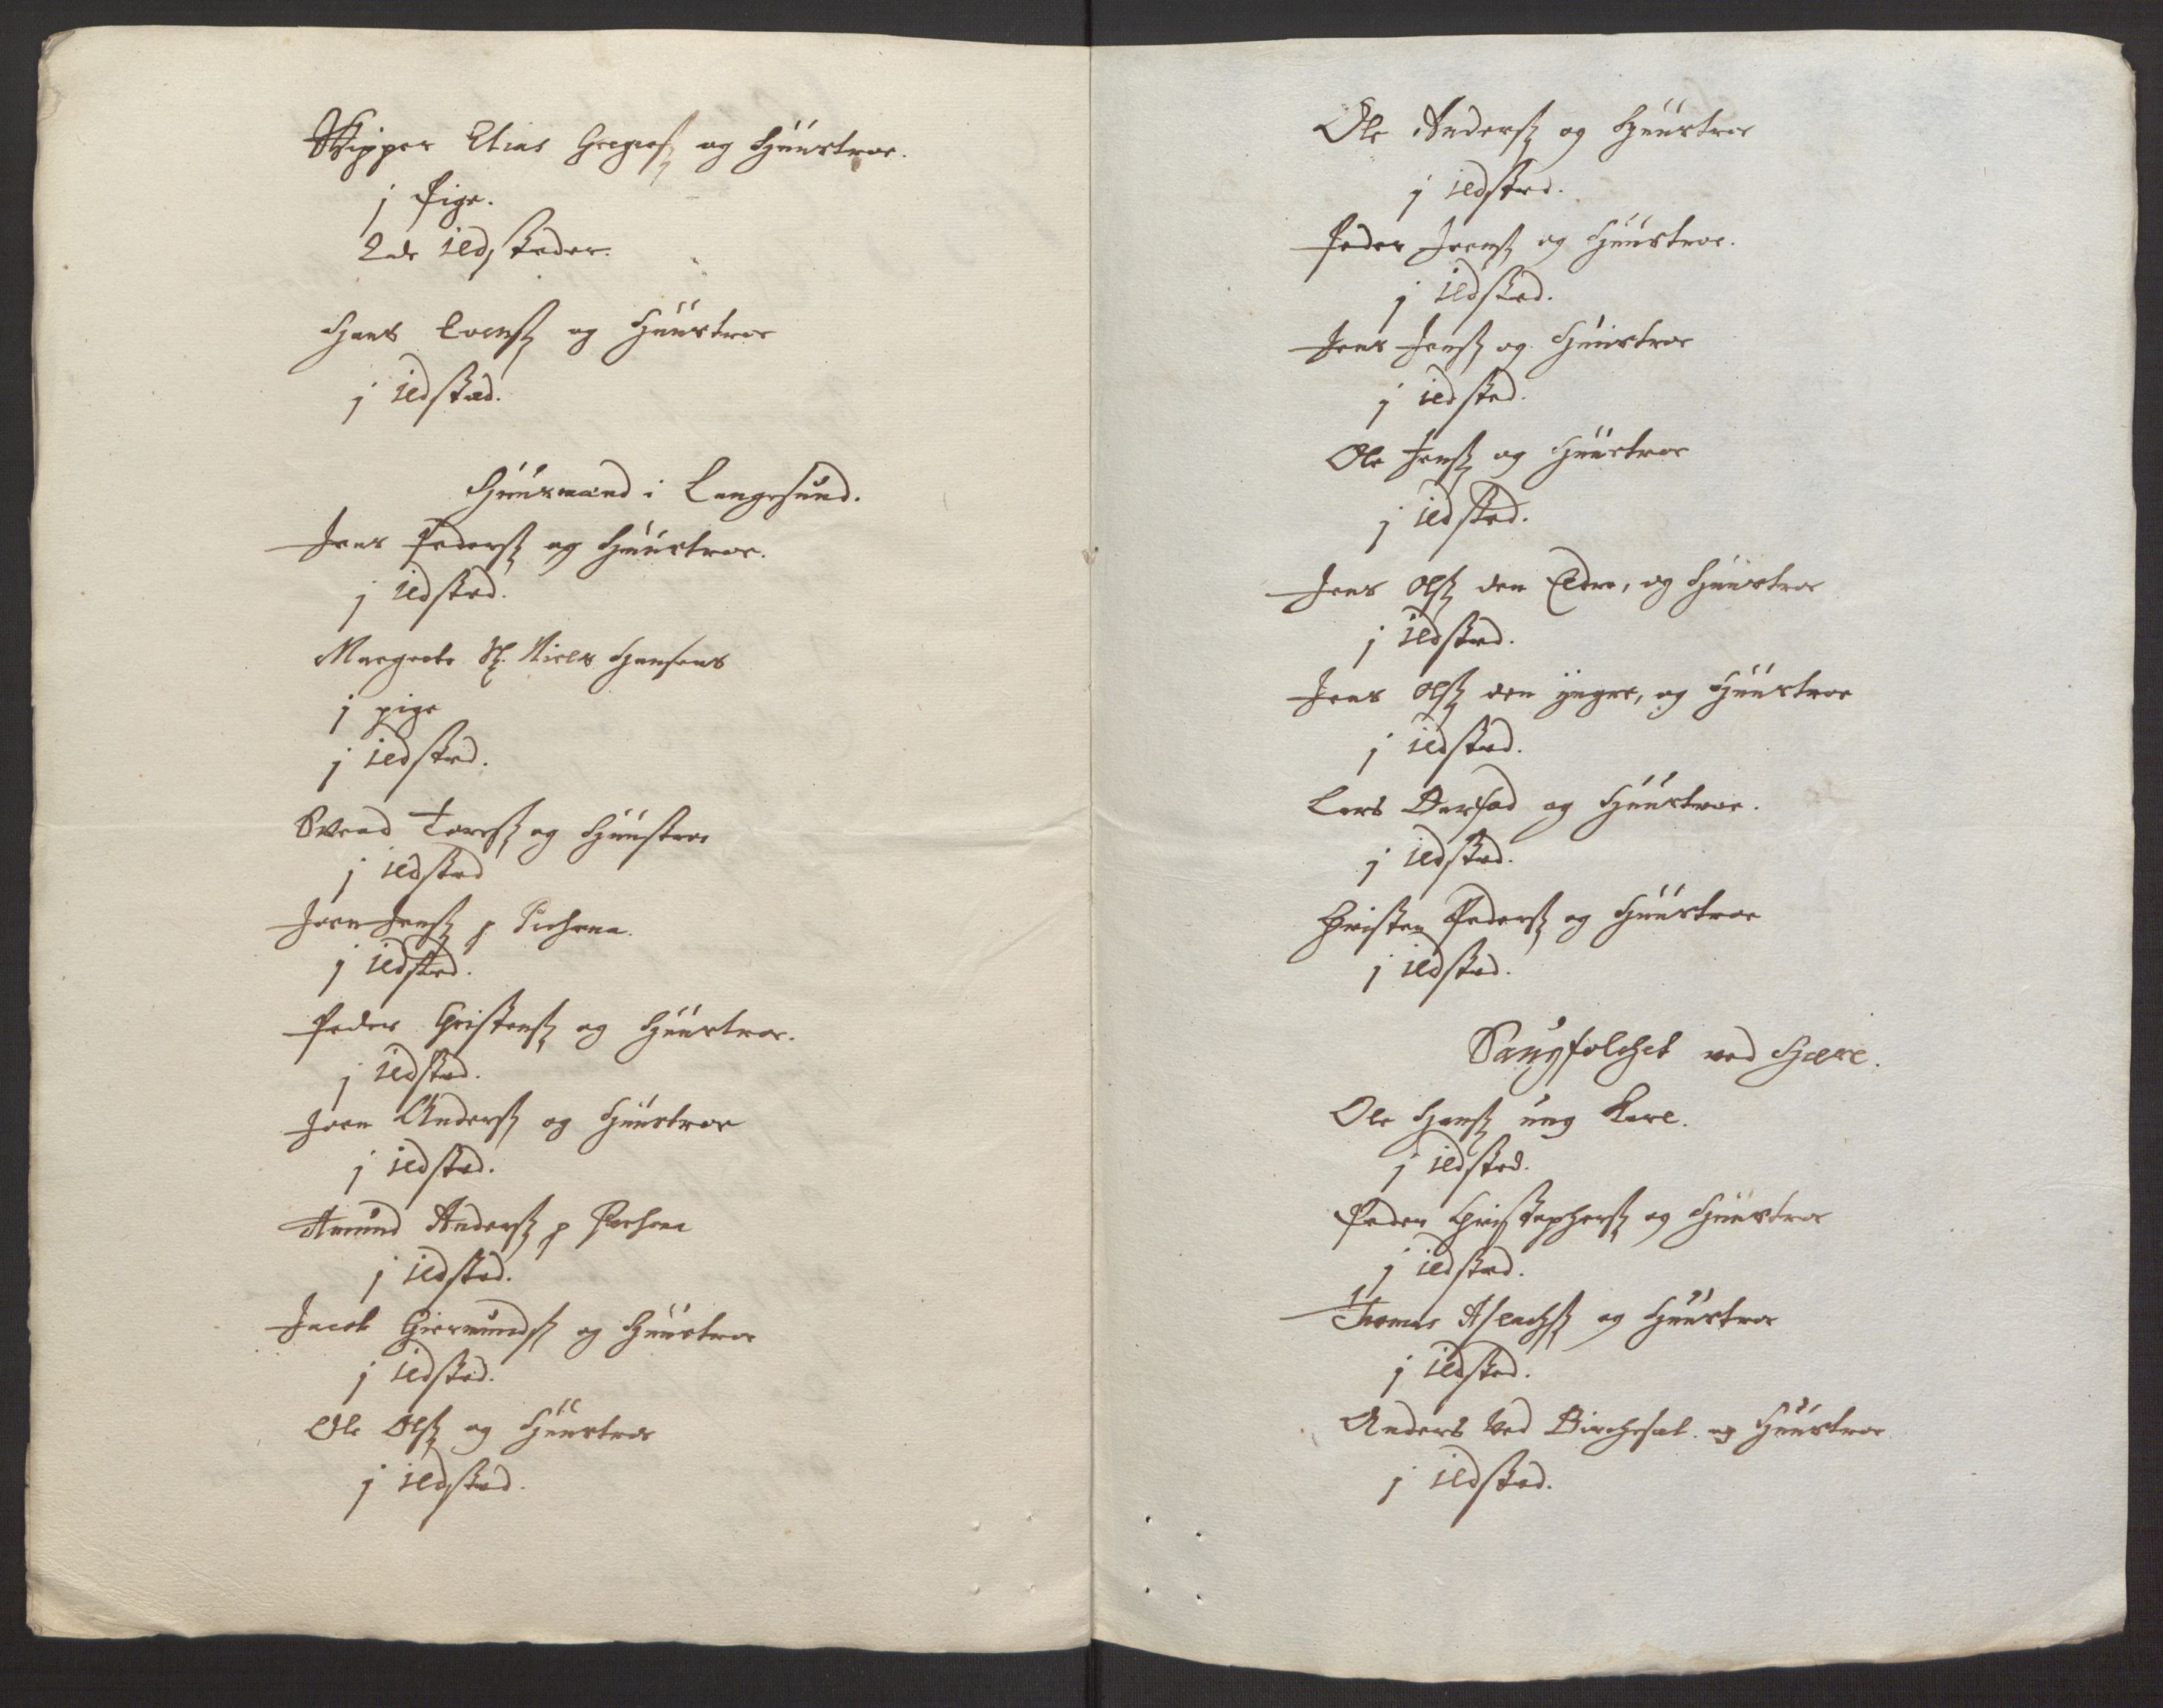 Skipper Elias Gregersß og Hüüstroe.
j Pige.
2de ildsteder.
Hans Evensß og Hüüstroe
j ildsted.
Hüüsmænd i Langesund.
Jens Pedersß og Hüüstroe.
j ildsted.
Margrete Sl. Niels Hansens
j pige
j ildsted.
Svend Toresß og Hüüstroe
j ildsted
Joen Jensß p
j ildsted.
Peder Christensß og Hüüstroe.
j ildsted.
Joen Andersß og Hüüstroe
j ildsted.
Amund Andersß p
j ildsted.
Jacob Giermundsß og Hüüstroe
j ildsted.
Ole Olsß og Hüüstroe
j ildsted.
Ole Andersß og Hüüstroe
j ildsted.
Peder Joensß og Hüüstroe.
j ildsted.
Jens Jensß og Hüüstroe
j ildsted.
Ole Jensß og Hüüstroe
j ildsted.
Jens Olsß den Eldre, og Hüüstroe
j ildsted.
Jens Olsß den yngre, og Hüüstroe
j ildsted.
Lars og Hüüstroe.
j ildsted.
Christen Pedersß og Hüüstroe
j ildsted.
Saugfolchet ved Herre.
Ole Hansß ung Karl.
j ildsted.
Peder Christophersß og Hüüstroe
j ildsted.
Thomas Aslachsß og Hüüstroe
j ildsted.
Anders ved og Hüüstroe
j ildsted.